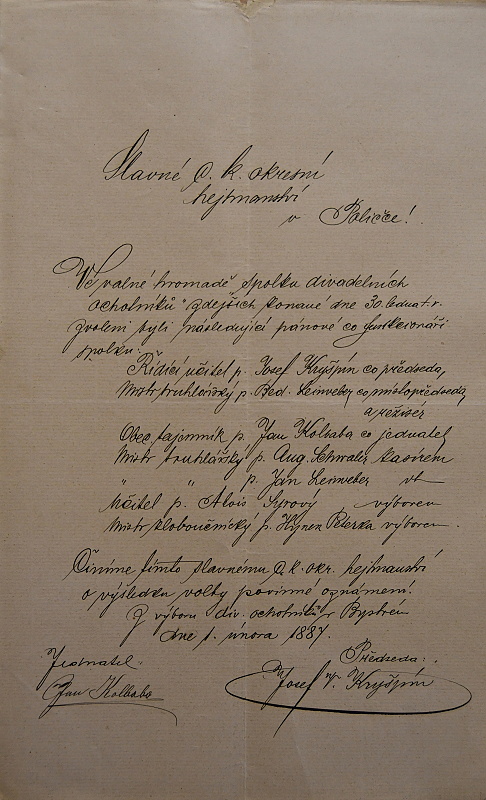 Slavné c. k. okresní
hejtmanství
v Poličce!
Ve valné hromadě spolku divadelních
ochotníků zdejších konané dne 30. ledna t. r.
zvoleni byli následující pánové co funkcionáři
spolku:
Řídící učitel p. Josef Kryšpín co předseda,
Mistr truhlářský p. Bed. Leinveber co místopředseda
a režisér
Obec. tajemník p. Jan Kolbaba co jednatel
Mistr truhlářský p. Aug. Schwaler kasírem
" " p. Jan Leinveber
Učitel p. Alois Syrový výborem
Mistr kloboučnický p. Hynek Peterka výborem.
Činíme tímto slavnému c. k. okr. hejtmanství
o výsledku volby povinné oznámení.
Z výboru div. ochotníků v Bystrém
dne 1. února 1887.
Jednatel: Předseda:
Jan Kolbaba Josef Kryšpín